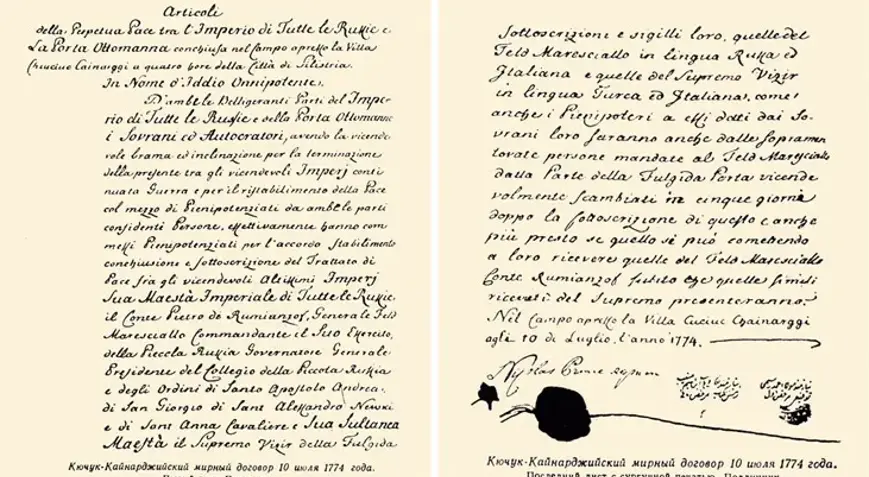 Articoli
della Perpetua Pace tra l'Imperio di Tutte le Russie e
La Porta Ottomanna conchiusa nel Campo apresso la Villa
Chiuciuc Cainarggi a quatro hore della Città di Silistria.
In Nome d'Iddio Onnipotente.
D'ambe le Belligeranti Parti del Impe-
rio di Tutte le Russie e della Porta Ottomanna
i Sovrani ed Autocratori, avendo la vicende
vole brama ed inclinazione per la terminazione
della presente tra gli vicendevoli Imperj conti
nuata Guerra e per il ristabilimento della Pace
col mezzo di Pienipotenziati da ambe le parti
considenti Persone, effettivamente hanno com
messi Pienipotenziati per l'accordo stabilimento
conchiusione e sottoscrizione del Trattato di
Pace fra gli vicendevoli Altissimi Imperj
Sua Maestà Imperiale di Tutte le Russie,
il Conte Pietro de Rumianzof, Generale Feld
Maresciallo Commandante il Suo Esercito,
della Piccola Russia Governatore Generale
Presidente del Collegio della Piccola Russia
e degli Ordini di Santo Apostolo Andrea,
di San Giorgio di Sant Alessandro Newski
e di Sant Anna Cavaliere e Sua Sultanea
Maestà il Supremo Vizir della Fulgida
Кючук-Кайнарджийский мирный договор 10 июля 1774 года.
Sottoscrizioni e sigilli loro, quelle del
Feld Maresciallo in lingua Russa ed
Italiana e quelle del Supremo Vizir
in lingua Turca ed Italiana, come
anche i Pienipoteri a essi dati dai So-
vrani loro saranno anche dalle sopramen
tovate persone mandate al Feld Maresciallo
dalla Parte della Fulgida Porta vicende
volmente scambiati in cinque giorni
doppo la sottoscrizione di questo e anche
più presto se quello si può comettendo
a loro ricevere quelle del Feld Maresciallo
Conte Rumianzof subito che quelle simili
ricevuti del Supremo presenteranno.
Nel Campo apresso la Villa Cuciuc Chainarggi
agli 10 di Luglio, l'anno 1774.
Кючук-Кайнарджийский мирный договор 10 июля 1774 года.
Последний лист с сургучной печатью. Подлинник